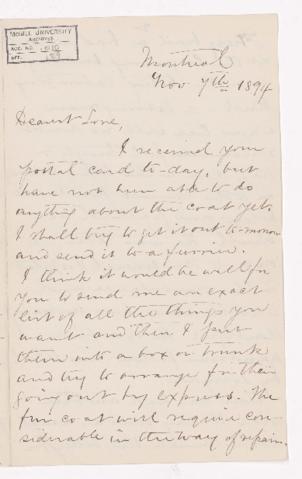 McGILL UNIVERSITY
ARCHIVES
ACC. NO.
REF.
Montreal
Nov 7th 1894
Dearest Love,
I received your
postal card to-day, but
have not been able to do
anything about the coat yet.
I shall try to get it out to-morrow
and send it to a furrier.
I think it would be well for
you to send me an exact
list of all the things you
want and then I
them into a box or trunk
and try to arrange for their
going out by express. The
fur coat will require con-
siderable in the way of repairs.